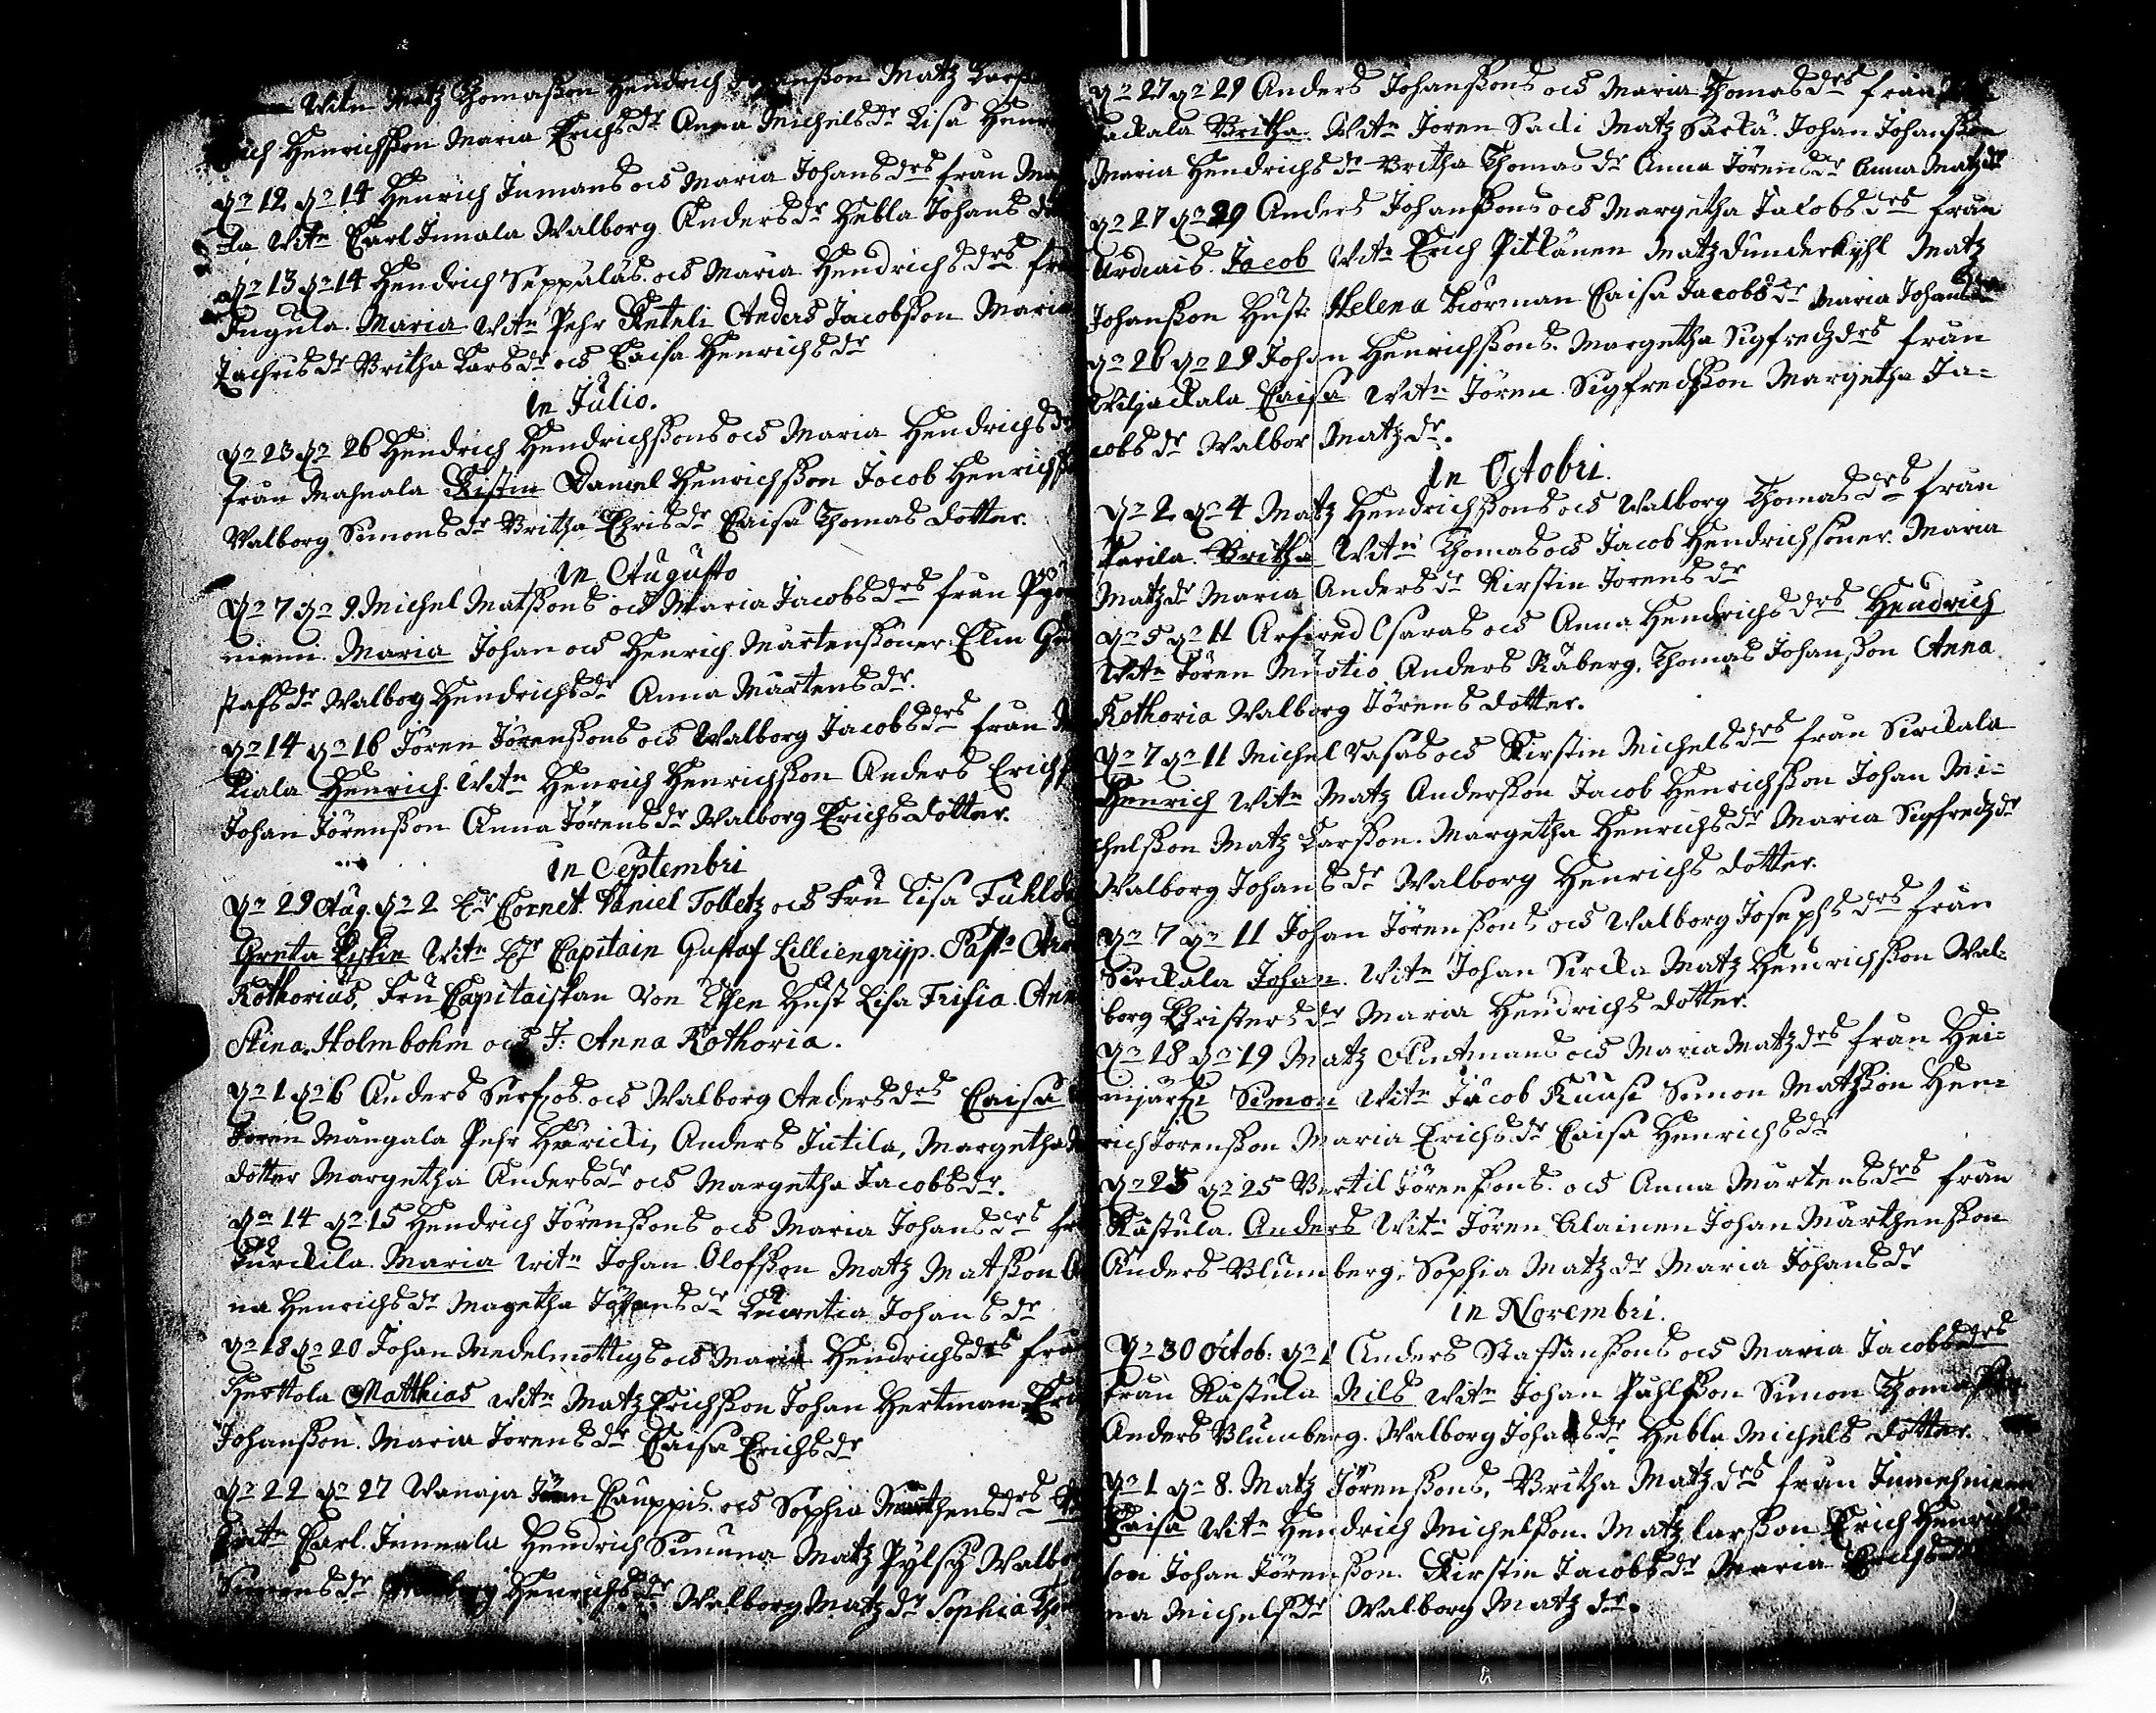 Witn Matz Thomasson Hendrich Matz Lars
Henrichsson Maria Erichs dr Anna Michels dr Lisa Henr
Dn 12 Dn 14 Henrich Inmans och Maria Johans drs från
la Witn Carl Innala Walborg Anders dr Hebla Johans
Dn 13 Dn 14 Hendrich Seppäläs och Maria Hendrichs drs frå
Ingula. Maria Witn Pehr Keteli Anders Jacobsson Maria
Zachris dr Britha Lars dr och Caisa Henrichs dr
in Julio.
Dn 23 Dn 26 Hendrich Hendrichssons och Maria Hendrichs
från Mahnala Kistin Daniel Henrichsson Jocob Henrichss
Walborg Simons dr Britha Chris dr Caisa Thomas dotter.
in Augusto
Dn 7 Dn 9. Michel Matssons och Maria Jacobs drs från
niemi. Maria Johan och Henrich Mårtenssöner Elin Gu
stafs dr Walbog Hendrichs dr Anna Mårtens dr.
Dn 14 Dn 16 Jören Jörenssons och Walborg Jacobs drs från
kiala Henrich. Witn Henrich Henrichsson Anders Erichs
Johan Jörensson Anna Jörens dr Walborg Erichs dotter.
in Septembri
Dn 29 Aug. Dn 2 Hr Cornet. Daniel Tolletz och Fru Lisa
Greta Kistin Witn Hr Capitain Gustaf Lilliengrijp. Past:
Kothorius, Fru Capitaiskan Von Essen Hust Lisa Frisia. Ann
Stina. Holmbohm och J: Anna Kothoria.
Dn 1 Dn 6 Anders och Walborg Anders drs Caisa
Joren Mångala Pehr Häricki, Anders Jutila, Margetha
dotter Margetha Anders dr och Margetha Jacobs dr.
Dn 14 Dn 15 Hendrich Jörenssons och Maria Johans drs fr
Turckila. Maria Witn Johan Olofsson Matz Matsson
na Henrichs dr Magetha dr Lucretia Johans dr
Dn 18 Dn 20 Johan Medelmottigs och Maria Hendrichs drs frå
Herttola Matthias Witn Matz Erichsson Johan Hertman
Johansson. Maria Jorens dr Caisa Erichs dr
Dn 22 Dn 27 Wanaja Cauppis och Sophia drs
Witn Carl. Innala Hendrich Simuna Matz Pylsy Walbor
Simons dr Henrichs dr Walborg Matz dr Sophia
Dn 27 Dn 29 Anders Johanssons och Maria Thomas drs från
Britha. Witn Joren Sacki Matz Särkä. Johan Johansson
Maria Hendrichs dr Britha Thomas dr Anna Jörens dr Anna Matz dr
Dn 27 Dn 29 Anders Johanssons och Margetha Jacobs drs från
Urdiais. Jacob Witn Erich Pitkänen Matz dunderkyhl Matz
Johansson Hust: Helena Biörman Caisa Jacobs dr Maria Johans
Dn 26 Dn 29 Johan Henrichssons. Margetha Sigfredz drs från
Wiljackala Caisa Witn Jören Sigfredsson Margetha Ja=
cobs dr Walbor Matz dr.
in Octobri.
Dn 2 Dn 4 Matz Hendrichssons och Walborg Thomas drs från
Parila. Britha Witn Thomas och Jacob Hendrichsöner. Maria
Matz dr Maria Anders dr Kirstin Jorens dr
Dn 5 Dn 11 Osaras och Anna Hendrichs drs Hendrich
Witn Jören Muotio Anders Råberg. Thomas Johansson Anna
Kothoria Walborg Jörens dotter.
Dn 7 Dn 11 Michel Vasas och Kirstin Michels drs från Sirckala
Henrich Witn Matz Andersson Jacob Henrichsson Johan Mi=
chelsson Matz Larsson. Margetha Henrichs dr Maria Sigfredz dr
Walborg Johans dr Walborg Henrichs dotter.
Dn 7 Dn 11 Johan Jörenssons och Walborg Josephs drs från
Sirckala Johan. Witn Johan Sircka Matz Hendrichsson Wal=
borg Christers dr Maria Hendrichs dotter.
Dn 18 Dn 19 Matz och Maria Matz drs från Hei=
Simon Witn Jacob Kuusi Simon Matsson Hen=
rich Jorensson Maria Erichs dr Caisa Henrichs dr
Dn 23 Dn 25 Bertil Jörensons. och Anna Mårtens drs från
Kästula. Anders Witn Jören Alainen Johan Mårthensson
Anders Blumberg, Sophia Matz dr Maria Johans dr
in Novembri.
Dn 30 Octob: Dn 1 Anders Staffanssons och Maria Jacobs drs
från Kästula Nils Witn Johan Påhlsson Simon Thomasson
Anders Blumberg. Walborg Johans dr Hebla Michels dotter.
Dn 1 Dn 8. Matz Jörenssons, Britha Matz drs från
Caisa Witn Hendrich Michelsson. Matz Larsson Erich Henrichs
son Johan Jörensson. Kirstin Jacobs dr Maria Erichs
na Michels dr Walborg Matz dr.